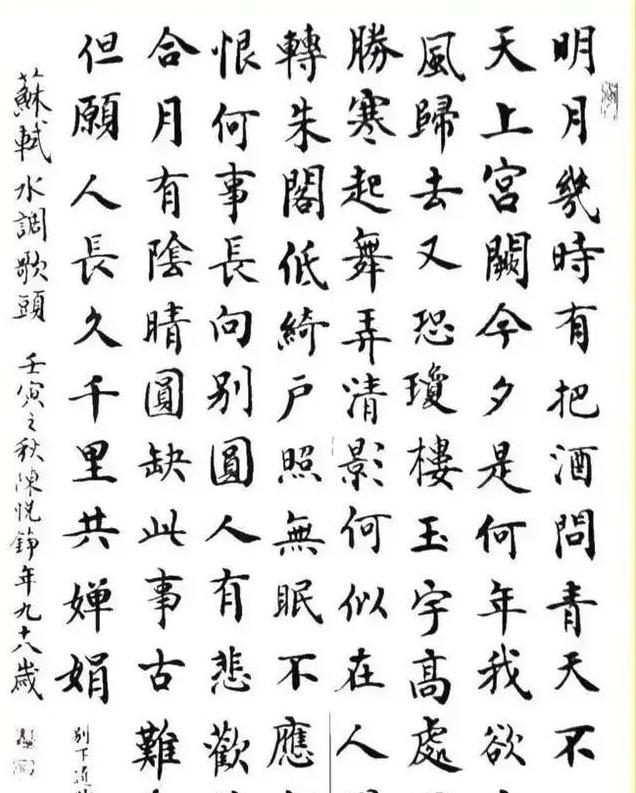 明月幾時有把酒問青天不
天上宮闕今夕是何年我欲
風歸去又恐瓊樓玉宇高處
勝寒起舞弄清影何似在人
轉朱閣低綺户照無眠不應
恨何事長向别圓人有悲歡
合月有陰晴圓缺此事古難
但願人長久千里共嬋娟
别下
蘇軾水調歌頭 壬寅之秋陳悅年九十八歲